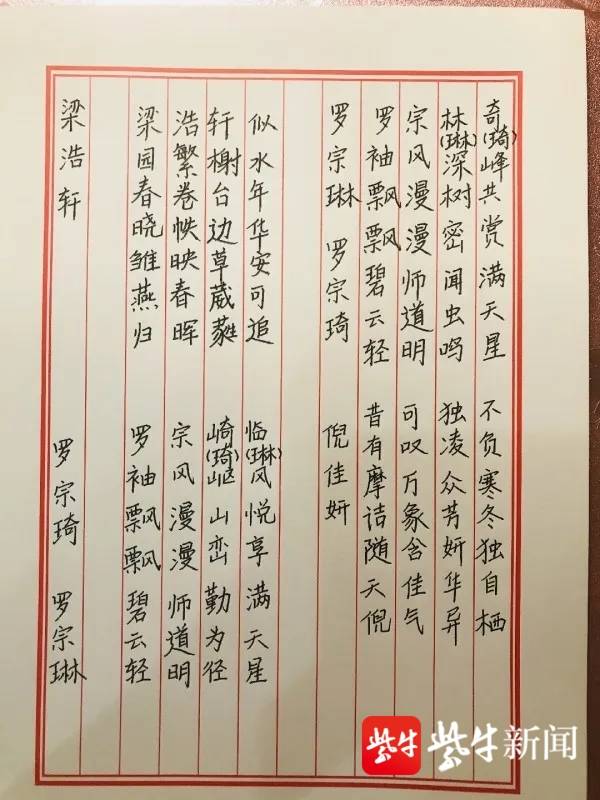 梁浩轩
梁园春晓雏燕归
浩繁卷帙映春晖
轩榭台边草葳蕤
似水年华安可追
罗宗琦 罗宗琳
罗袖飘飘碧云轻
宗风漫漫师道明
崎(琦)岖山峦勤为径
临(琳)风悦享满天星
罗宗琳 罗宗琦
罗袖飘飘碧云轻
宗风漫漫师道明
林(琳)深树密闻虫鸣
奇(琦)峰共赏满天星
倪佳妍
昔有摩诘随天倪
可叹万象含佳气
独凌众芳妍华异
不负寒冬独自栖
紫牛 紫牛新闻